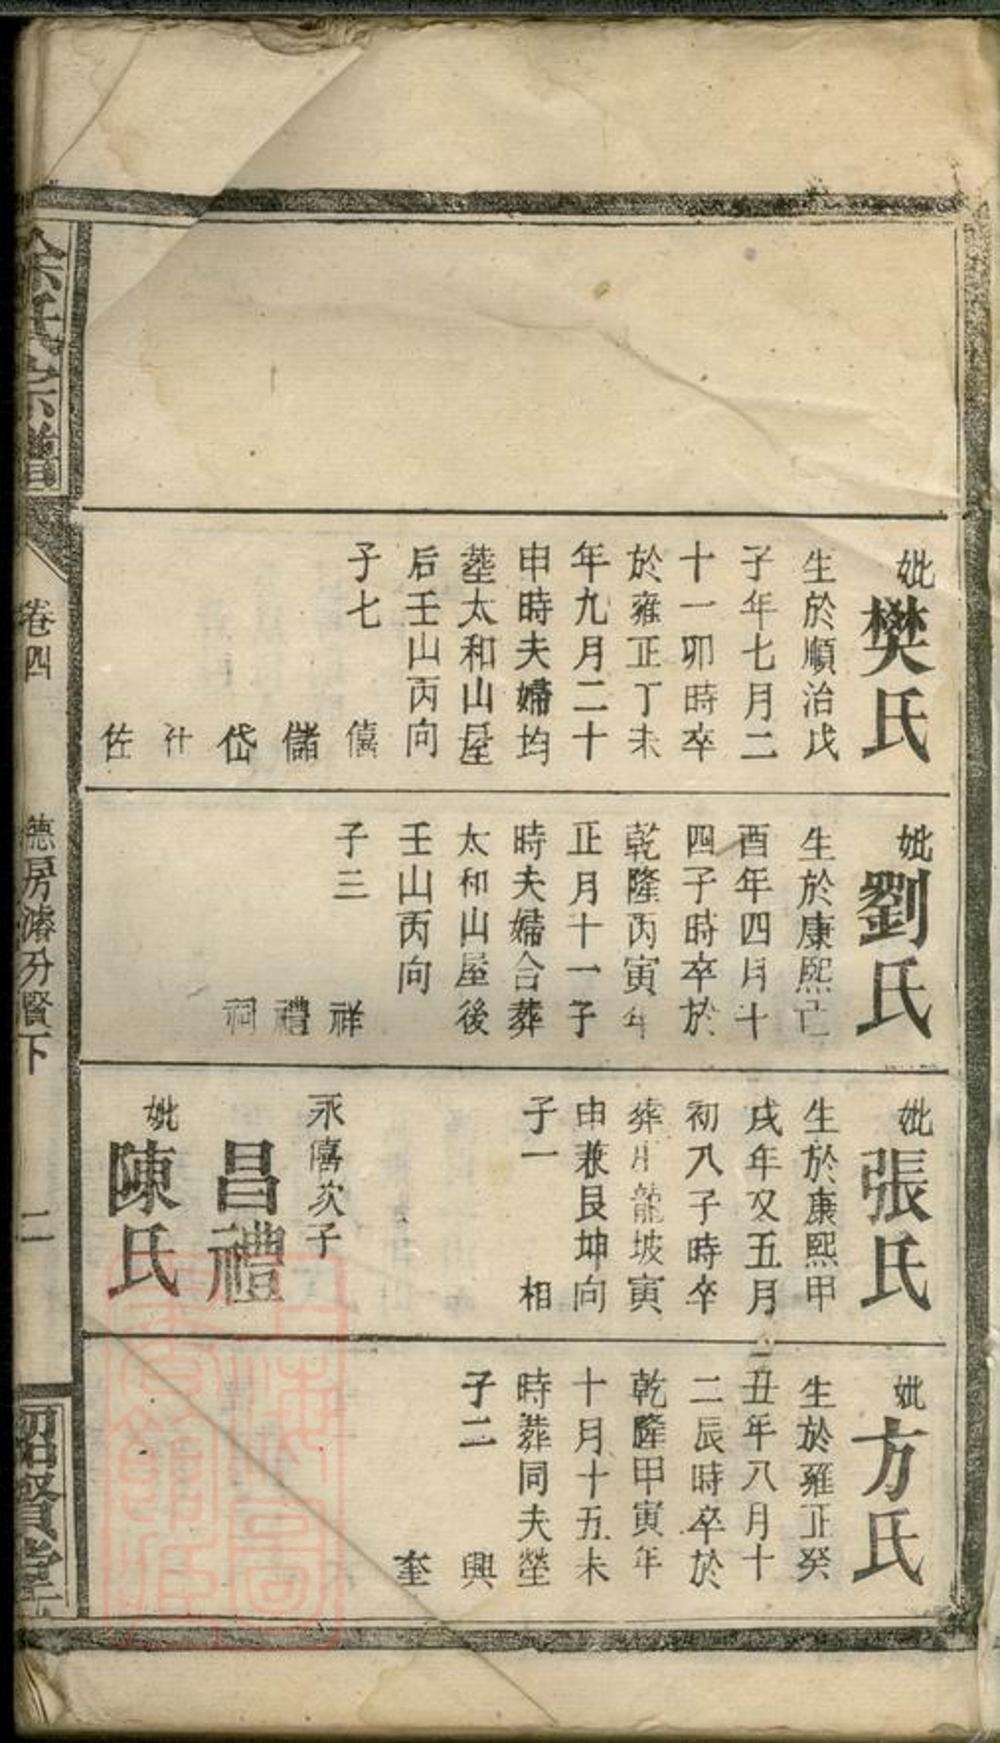 妣樊氏
生於順治戊
子年七月二
十一卯時卒
於雍正丁未
年九月二十
申時夫婦均
塟太和山屋
后壬山丙向
子七
僖
儲
岱
什
佐
妣劉氏
生於康熙亡
酉年四月十
四子時卒於
乾隆丙寅年
正月十一子
時夫婦合葬
太和山屋後
壬山丙向
子三
祥
禮
祠
妣張氏
生於康熙甲
戌年又五月
初八子時卒
葬爿龍坡寅
申兼艮坤向
子一
相
永僖次子
昌禮
妣陳氏
妣方氏
生於雍正癸
丑年八月十
二辰時卒於
乾隆甲寅年
十月十五未
時葬同夫塋
子二
興
奎
余氏宗譜
卷四
德房濬分賢下
二
紹賢堂
上海圖書館藏